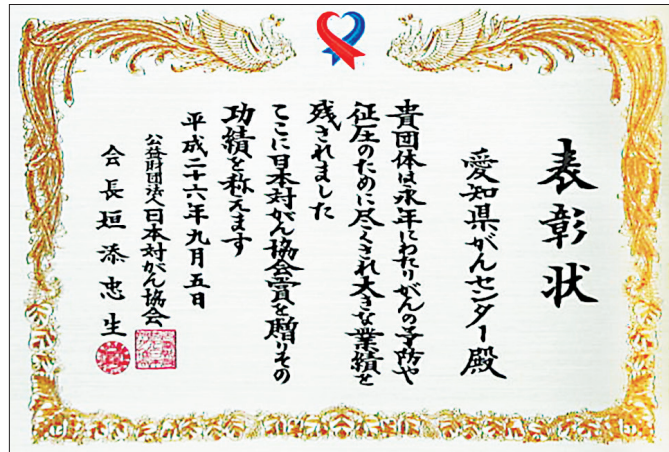 表彰状
愛知県がんセンター殿
貴団体は永年にわたりがんの予防や
征圧のために尽くされ大きな業績を
残されました
ここに日本対がん協会賞を贈りその
功績を称えます
平成二十六年九月五日
公益財団法人日本対がん協会
会長垣添忠生